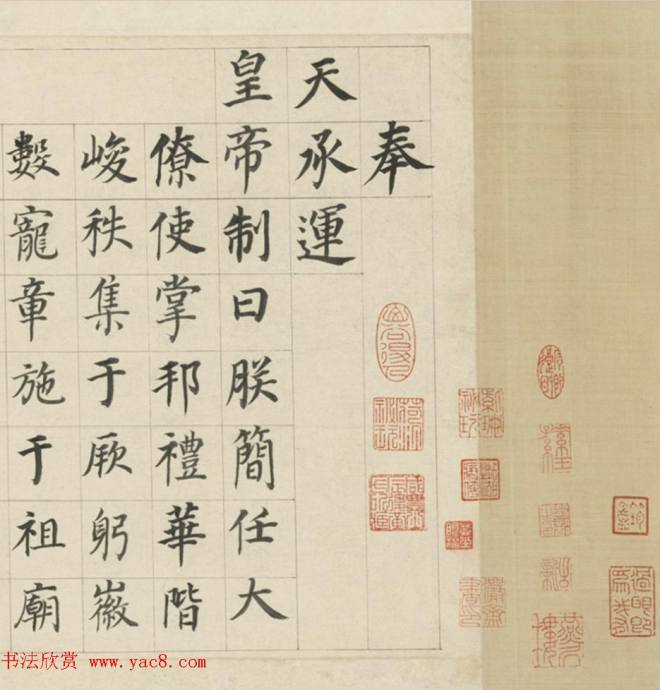 奉
天承運
皇帝制曰朕簡任大
僚使掌邦禮華階
峻秩集于厥躬徽
數寵章施于祖廟
书法欣赏 www.yac8.com